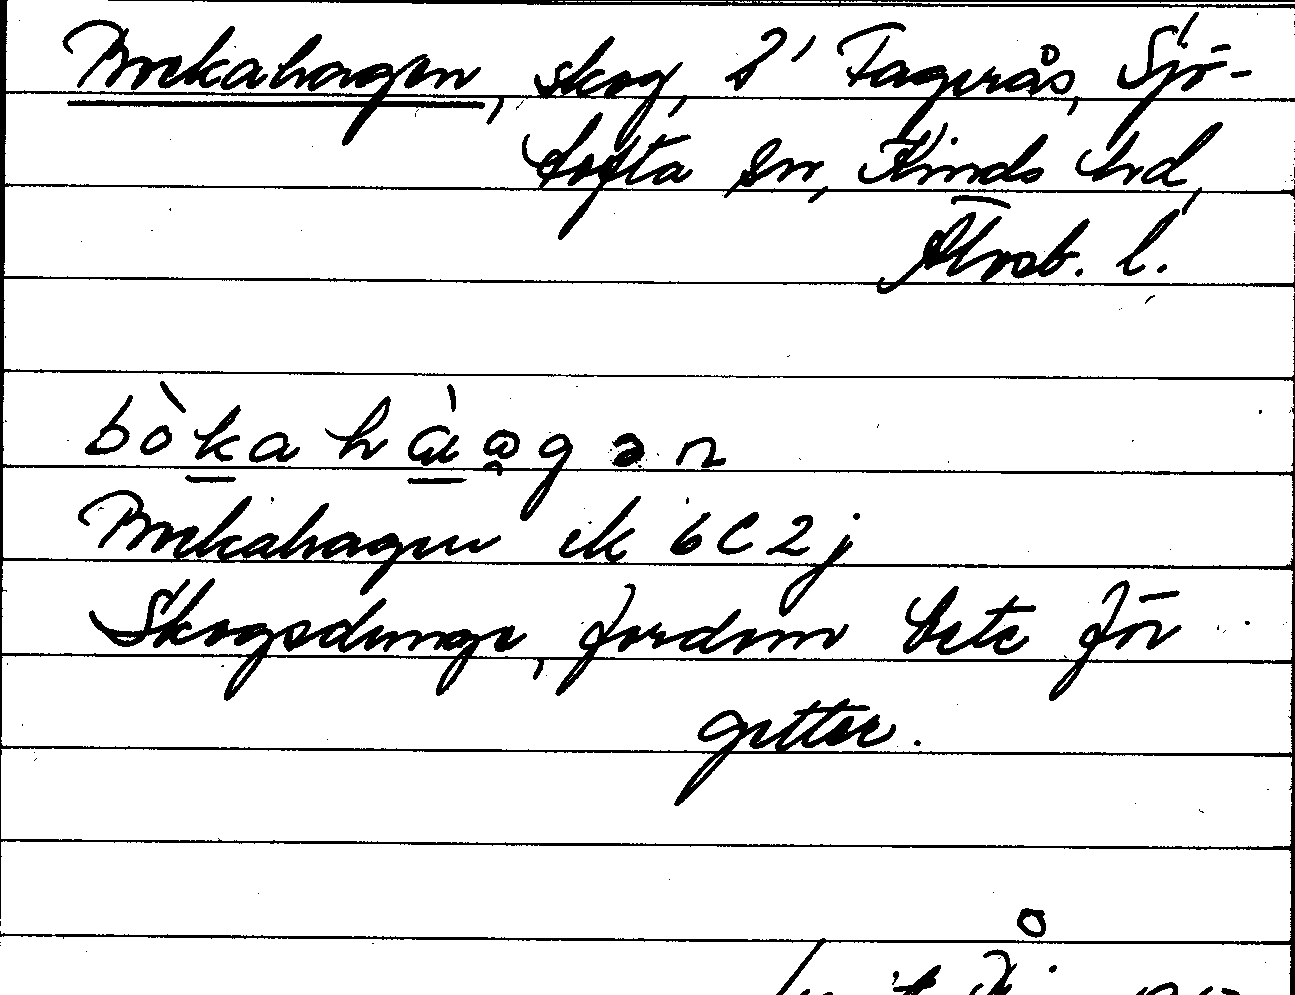 Bockahagen, skog, I' Fagerås, Sjö-
tofta sn, Kinds hrd,
Älvsb. l.
bòkahàagən
Bockahagen ek 6C2j
Skogsdunge, fordom bete för
getter.